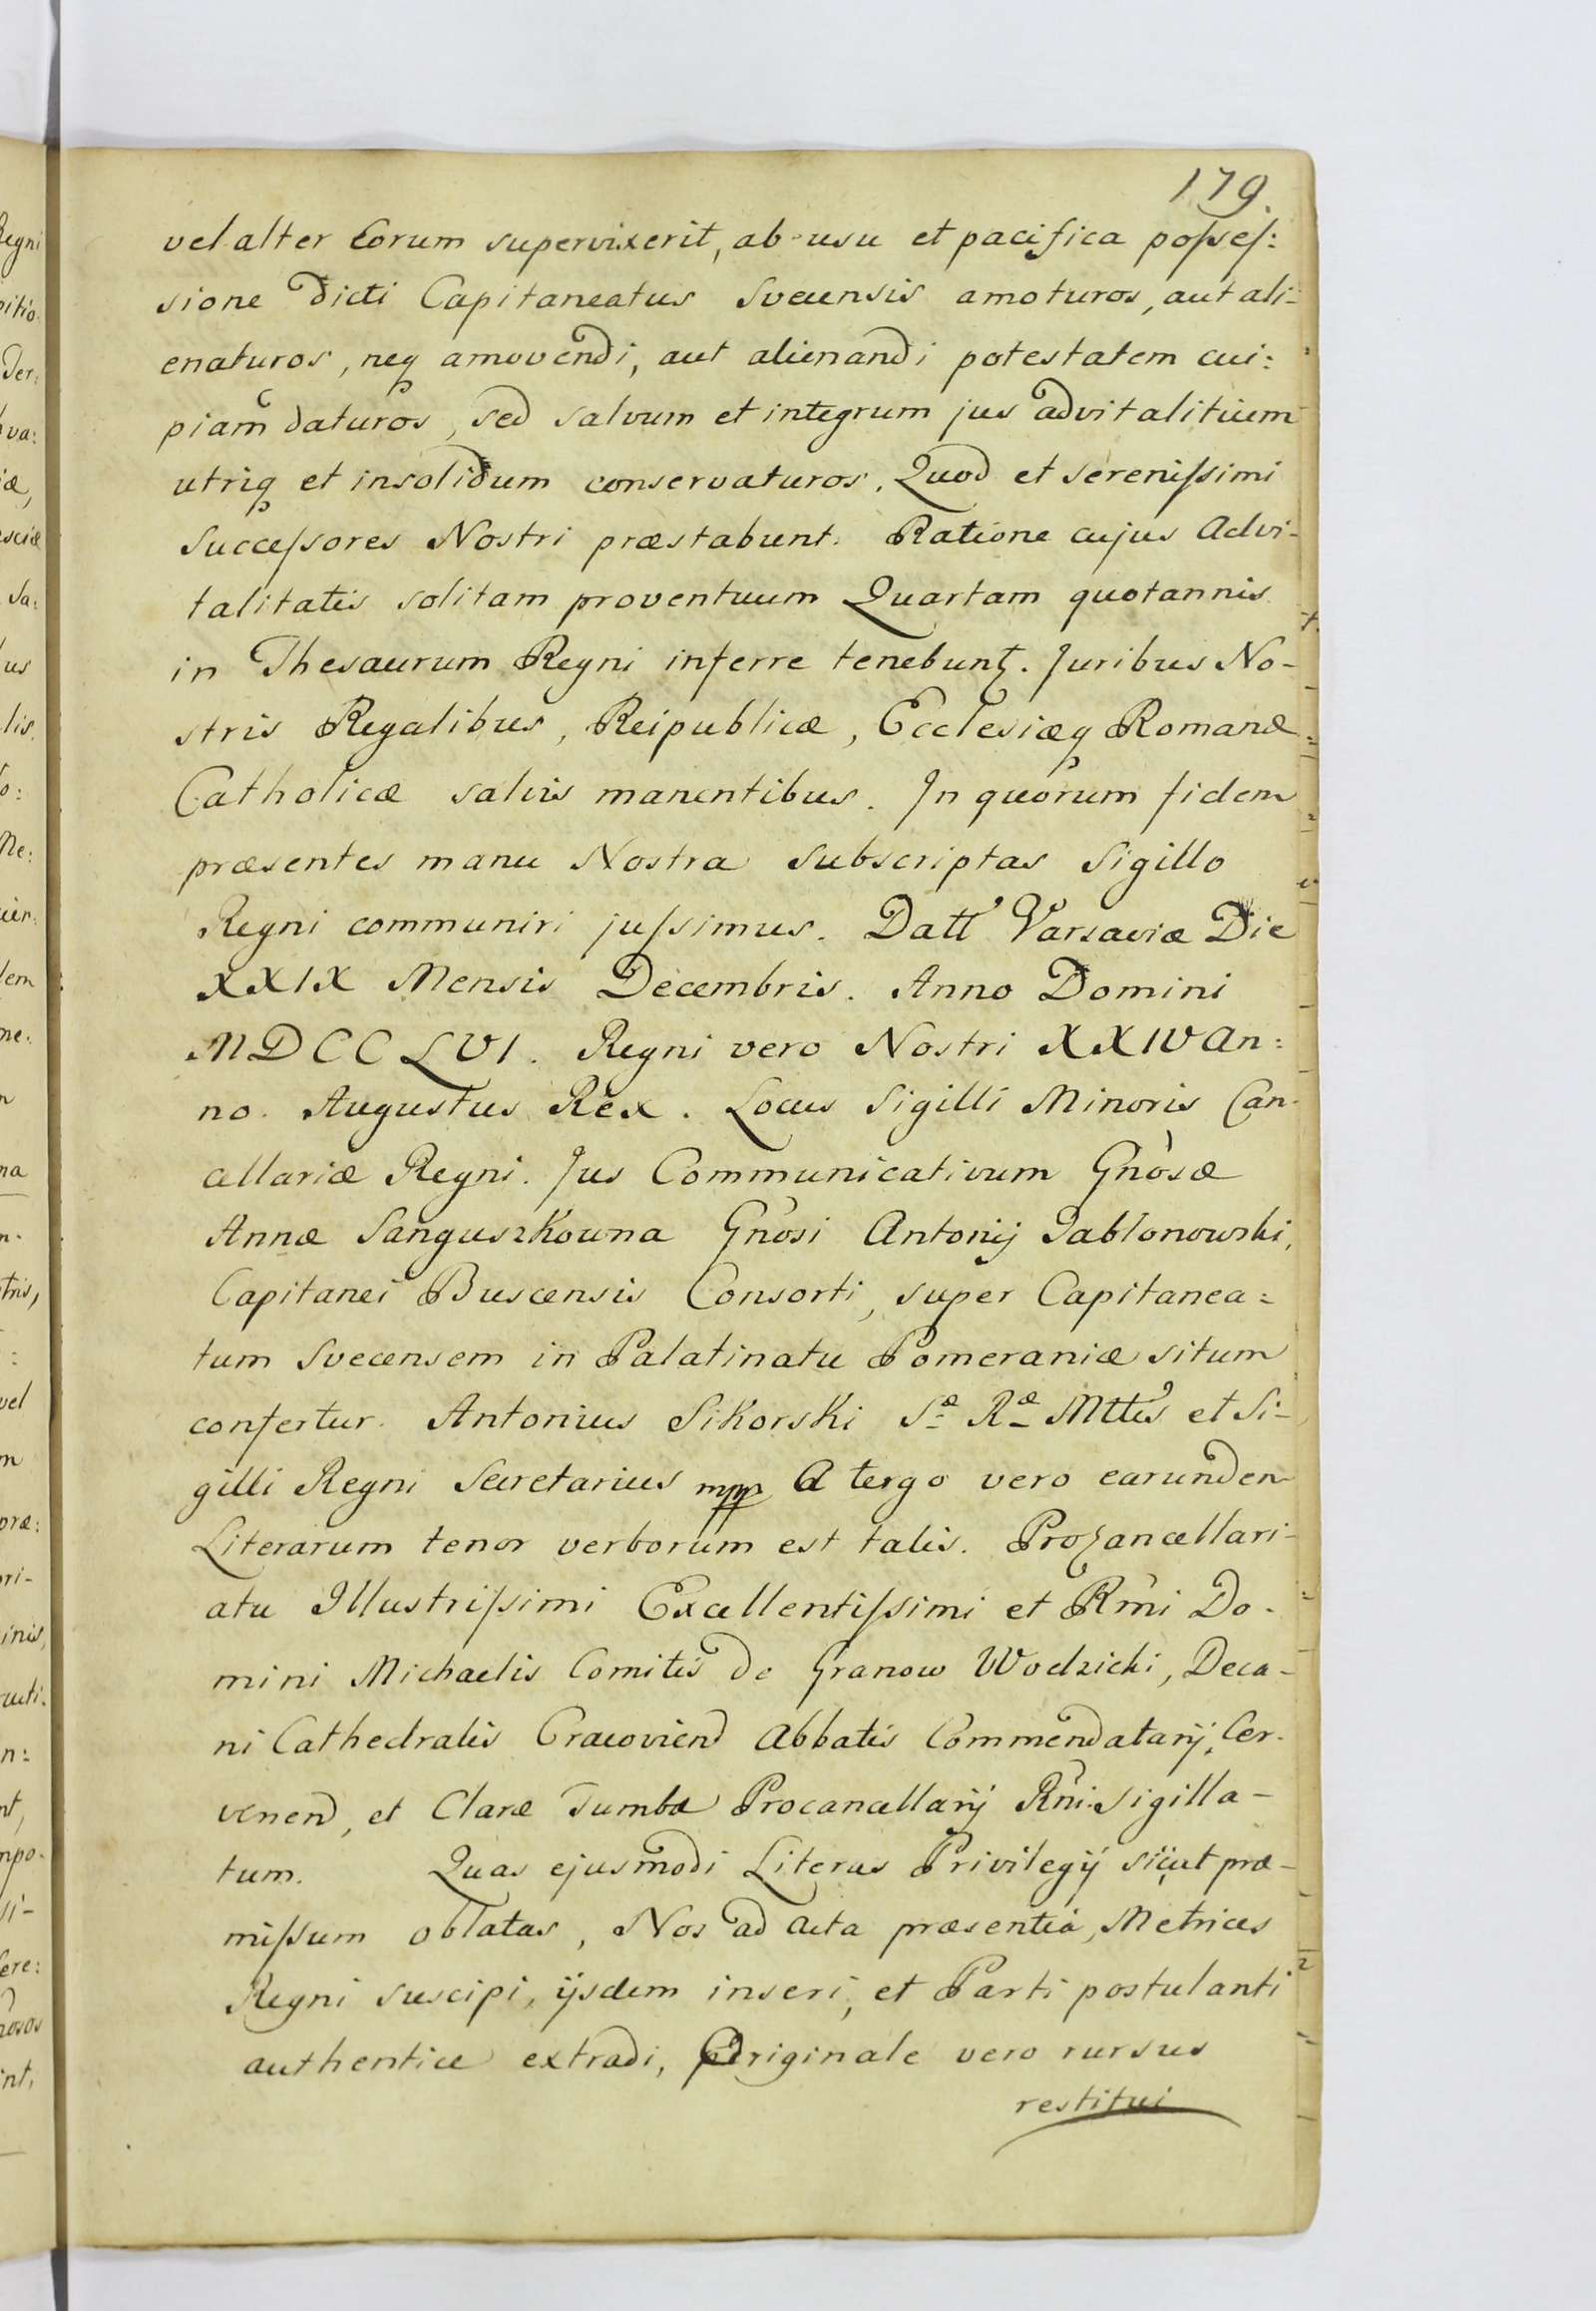 179.
vel alter Eorum supervixerit, ab usu et pacifica possef:
sione dicti Capitaneatus Svecensis amoturos, aut ali-
enaturos, neq amovendi, aut alienandi potestatem cui:
piam daturos, sed salvum et integrum jus advitalitium
utriq et insolidum conservaturos. Quod et serenissimi
Successores Nostri præstabunt. Ratione cujus Advi-
talitatis solitam proventuum Quartam quotannis
in Thesaurum Regni inferre tenebunt. Juribus No-
stris Regalibus, Reipublicæ, Ecclesiæq Romanæ
Catholicæ salvis manentibus. In quorum fidem
præsentes manu Nostra subscriptas Sigillo
Regni communiri jussimus. Datt Varsaviæ Die
XXIX Mensis Decembris. Anno Domini
MDCCLVI. Regni vero Nostri XXIV An:
no. Augustus Rex. Locus Sigilli Minoris Can-
cellariæ Regni. Jus Communicativum Gnosæ
Annæ Sanguszkowna Gnosi Antonij Jabłonowski,
Capitanei Buscensis Consorti, super Capitanea=
tum Svecensem in Palatinatu Pomeraniæ situm
confertur. Antonius Sikorski Sæ Ræ Mttis et Si-
gilli Regni Secretarius mpp A tergo vero earunden
Literarum tenor verborum est talis. Procancellari-
atu Illustrissimi Excellentissimi et Rmi Do-
mini Michaelis Comitis de Granow Wodzicki, Deca-
ni Cathedralis Cracovien Abbatis Commendatarij, Cer-
venen, et Claræ Tumbæ Procancellarij Rni Sigilla-
tum. Quas ejusmodi Literas Privilegij sicut præ-
missum oblatas, Nos ad Acta præsentia, Metrices
Regni suscipi, ijsdem inseri, et Parti postulanti
authentice extradi, Originale vero rursus
restitui